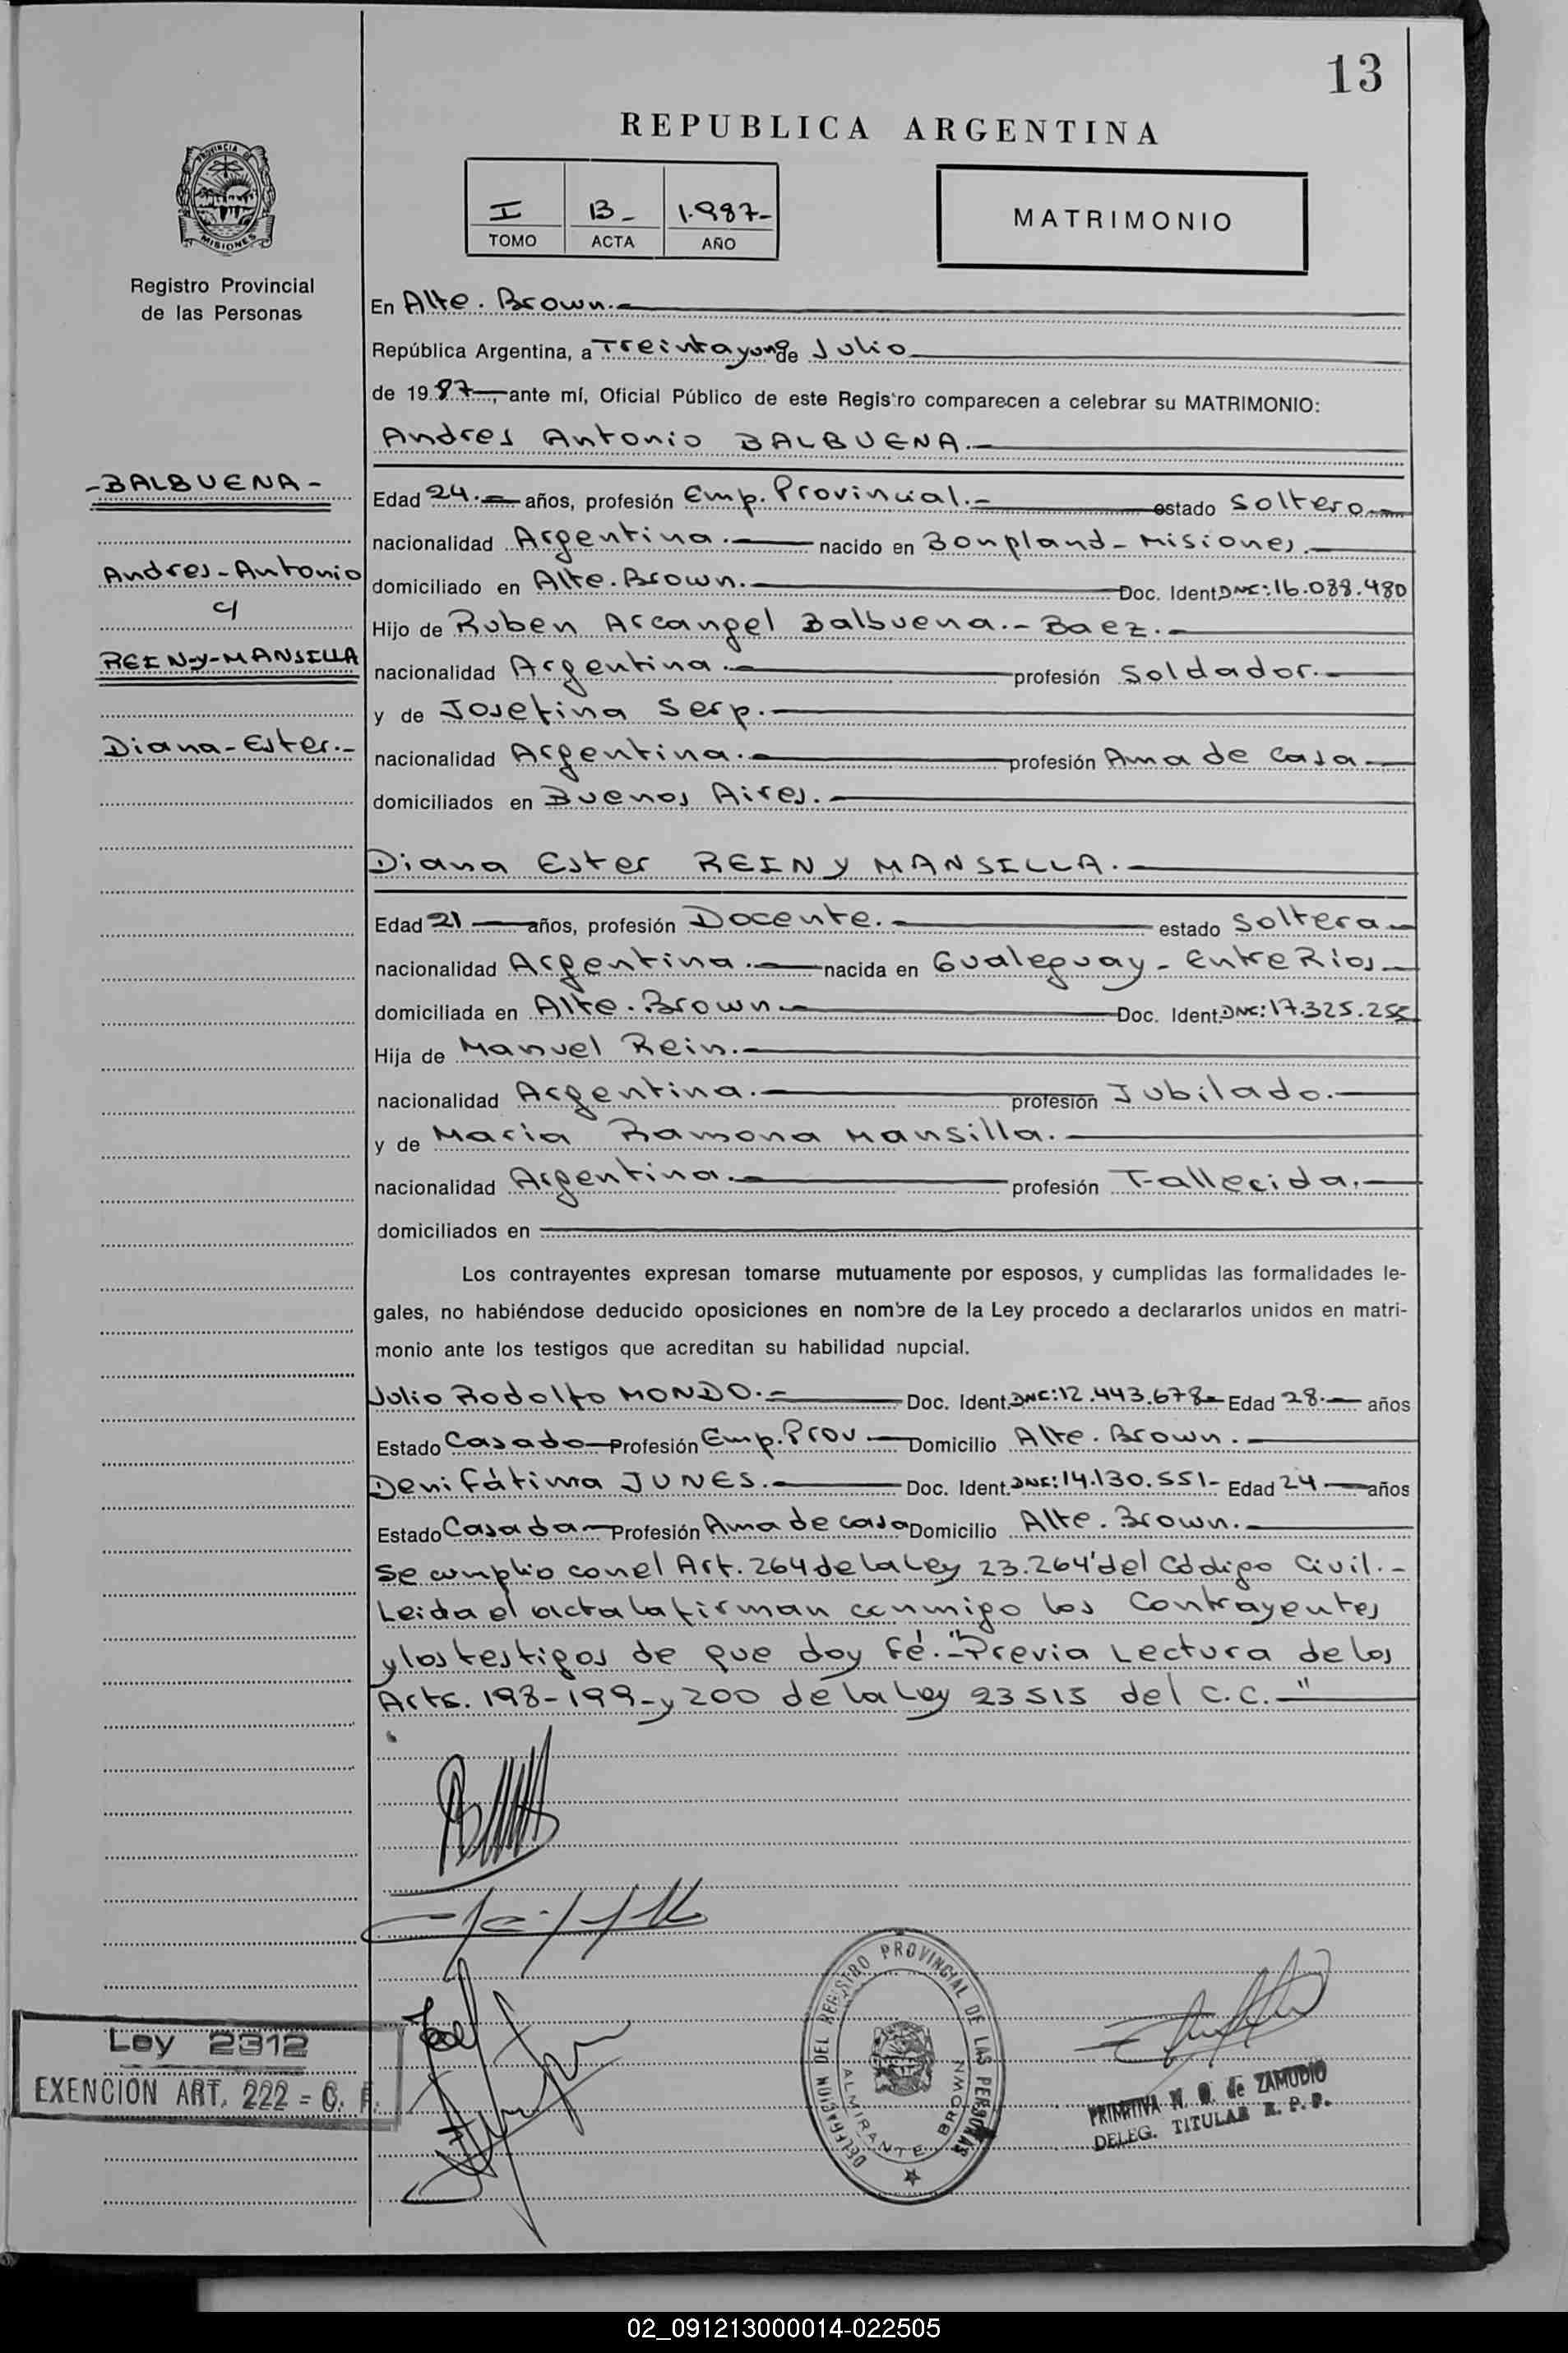 13
REPUBLICA ARGENTINA
PROVINCIA DE
MISIONES
Registro Provincial
de las Personas
I 13- 1.987-
TOMO ACTA AÑO
MATRIMONIO
En Alte. Brown.-
República Argentina, a Treintayuno de Julio
de 1987, ante mí, Oficial Público de este Registro comparecen a celebrar su MATRIMONIO:
Andres Antonio BALBUENA.-
-BALBUENA-
Andres-Antonio
c/
REIN-y-MANSILLA
Diana-Ester.-
Edad 24.- años, profesión Emp. Provincial.- estado Soltero
nacionalidad Argentina.- nacido en Bonpland-Misiones.
domiciliado en Alte. Brown.- Doc. Ident. DNI: 16.088.480
Hijo de Ruben Arcangel Balbuena.- Baez.-
nacionalidad Argentina.- profesión Soldador.-
y de Josefina Serp.-
nacionalidad Argentina.- profesión Ama de Casa
domiciliados en Buenos Aires.-
Diana Ester REIN y MANSILLA.-
Edad 21 años, profesión Docente.- estado Soltera
nacionalidad Argentina.- nacida en Gualeguay-Entre Ríos
domiciliada en Alte. Brown Doc. Ident. DNI: 17.325.25
Hija de Manuel Rein.-
nacionalidad Argentina.- profesión Jubilado.-
y de Maria Ramona Mansilla.-
nacionalidad Argentina.- profesión Fallecida.-
domiciliados en
Los contrayentes expresan tomarse mutuamente por esposos, y cumplidas las formalidades le-
gales, no habiéndose deducido oposiciones en nombre de la Ley procedo a declararlos unidos en matri-
monio ante los testigos que acreditan su habilidad nupcial.
Julio Rodolfo MONDO.- Doc. Ident. DNI: 12.443.678 Edad 28.- años
Estado Casado Profesión Emp. Prov Domicilio Alte. Brown.-
Deni Fátima JUNES.- Doc. Ident. DNI: 14.130.551- Edad 24 años
Estado Casada Profesión Ama de casa Domicilio Alte. Brown.-
Se cumplio con el Art. 264 de la Ley 23.264' del Código Civil.-
Leida el acta la firman conmigo los Contrayentes
y los testigos de que doy fé.- "Previa Lectura de los
Arts. 198-199-y 200 de la Ley 23515 del C.C.-"
Ley 2312
EXENCION ART. 222 = C. F.
DELEGACION DEL REGISTRO PROVINCIAL DE LAS PERSONAS
ALMIRANTE BROWN
PRIMITIVA N. de ZAMUDIO
DELEG. TITULAR R. P. P.
02_091213000014-022505